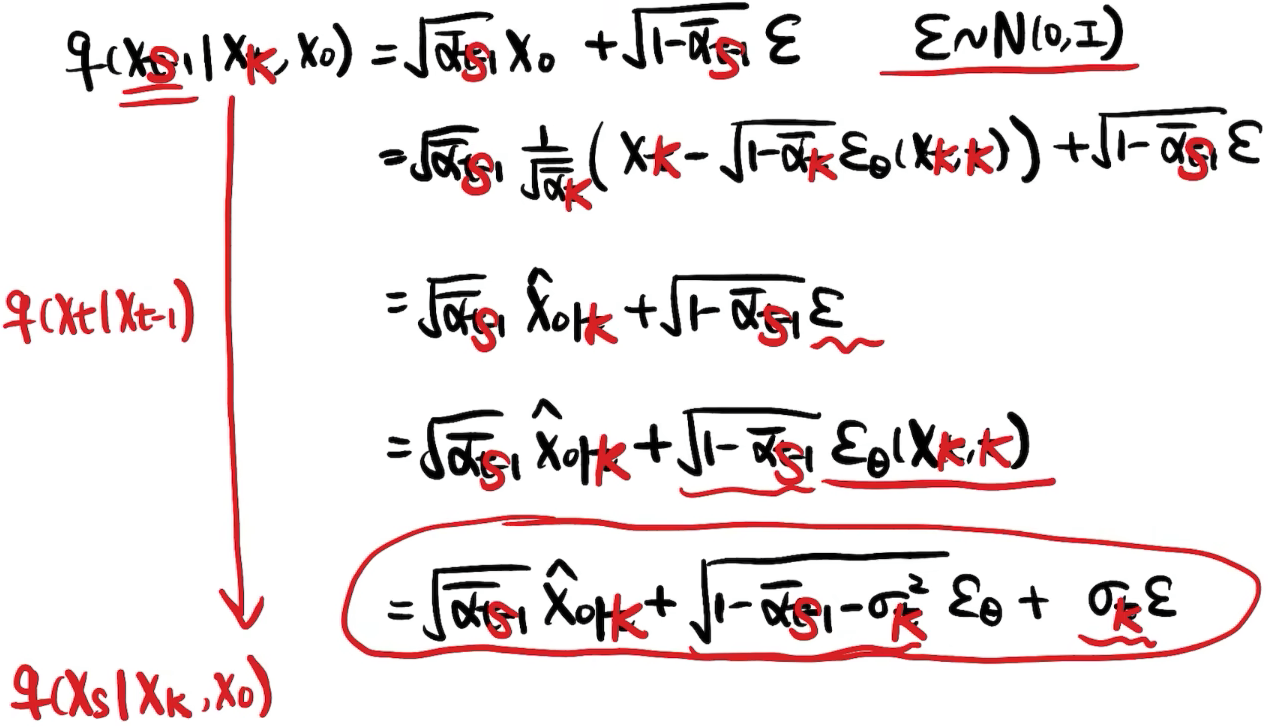 q(x_s|x_k, x_0) = √ᾱ_s x_0 + √(1-ᾱ_s) ε    ε~N(0,I)
= √ᾱ_s 1/√ᾱ_k (x_k - √(1-ᾱ_k) ε_θ(x_k,k)) + √(1-ᾱ_s) ε
q(x_t|x_{t-1})
= √ᾱ_s x̂_{0|k} + √(1-ᾱ_s) ε
= √ᾱ_s x̂_{0|k} + √(1-ᾱ_s) ε_θ(x_k,k)
= √ᾱ_s x̂_{0|k} + √(1-ᾱ_s-σ_k²) ε_θ + σ_k ε
q(x_s|x_k, x_0)